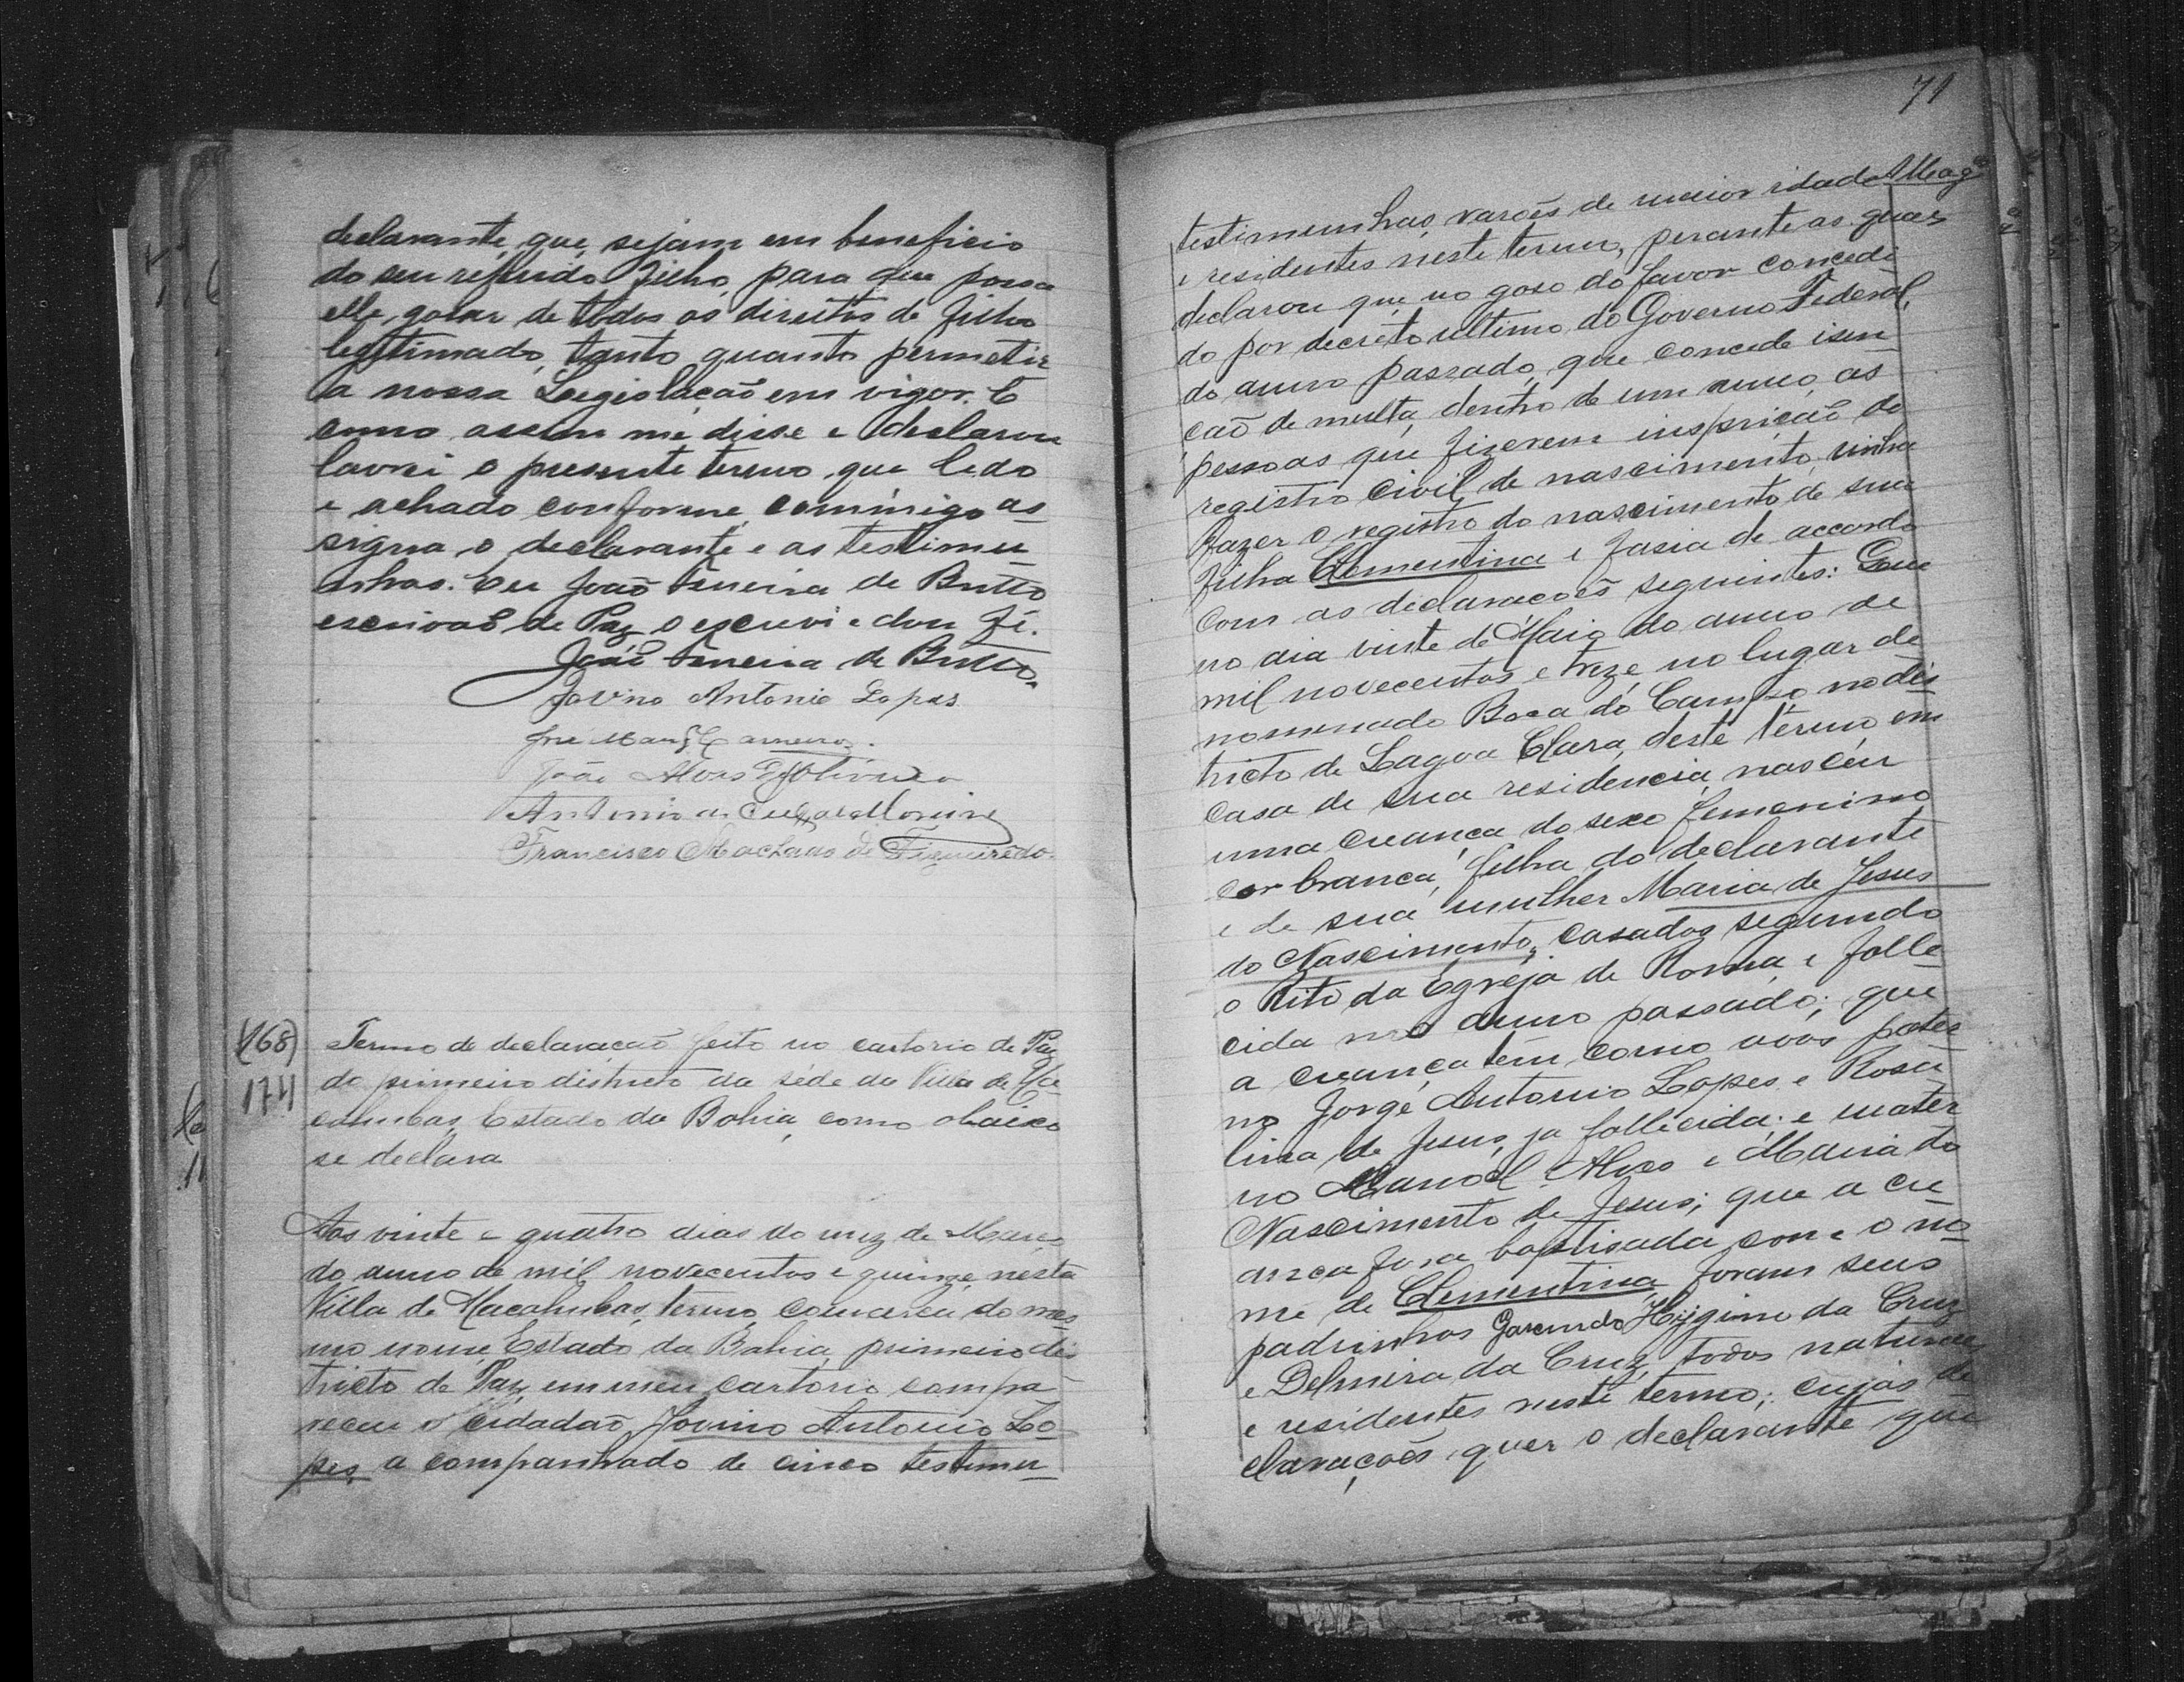 declarante, que, sejam em beneficio
do seu referido Filho, para que possa
elle, gosar de todos os direitos de filho
legitimado, tanto quanto permetir
a nossa Legislação em vigor. E
como assim me disse e declarou
lavrei o presente termo que lido
e achado conforme, commigo as
signa o declarante e as testimu
nhas. Eu João Ferreira de Britto
escrivaõ de Paz o escrevi e dou fé.
João Ferreira de Britto.
Jovino Antonio Lopes
José Carneiro.
João Alves
Antonio Moreira
Francisco Machado de Figueirêdo.
(68)
174
Termo de declaração feito no cartorio de Paz
do primeiro districto da séde da Villa de Ma
cahubas, Estado da Bahia, como abaixo
se declara
Aos vinte e quatro dias do mez de Março
do anno de mil novecentos e quinze, nesta
Villa de Macahubas, termo, comarca do mes
mo nome, Estado da Bahia, primeiro dis
tricto de Paz, em meu cartorio compa
receu o cidadão Jovino Antonio Lo
pes, a companhado de cinco testimu
71
testimunhas, varoẽs de maior idade
e residentes neste termo, perante as quaes
declarou que no goso do favor concedi
do por decreto ultimo do Governo Federal,
do anno passado, que concede isen
ção de multa, dentro de um anno, as
pessoas que fizerem insprição do
registro civil de nascimento, vinha
fazer o registro do nascimento de sua
filha Clementina e fasia de accordo
com as declaracoẽs seguintes: Que
no dia vinte de Maio do anno de
mil novecentos e treze, no lugar de
nominado Boca do Campo, no dis
tricto de Lagoa Clara, deste termo, em
casa de sua residencia, nasceu
uma creança do sexo femenino
cor branca, filha do declarante
e de sua mulher Maria de Jesus
do Nascimento, casados segundo
o Rito da Egreja de Roma, e falle
cida no anno passado; que
a creança tem como avós pater
no Jorge Antonio Lopes e Rosa
lina de Jesus, ja fallecida; e mater
no Manoel Alves e Maria do
Nascimento de Jesus; que a cre
ança fora baptisada com o no
me de Clementina, foram seus
padrinhos Hygino da Cruz
e Delmira da Cruz, todos naturaes
e residentes neste termo; cujas de
claraçoẽs quer o declarante que